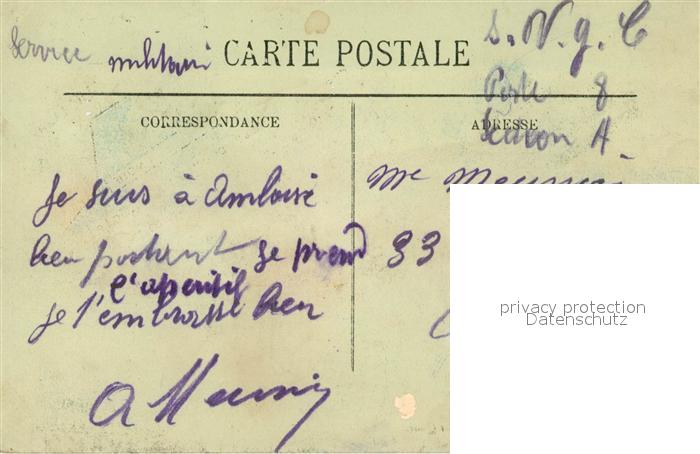 Service militaire
CARTE POSTALE
S. N. g. C
Poste 8
Section A.
CORRESPONDANCE
ADRESSE
Je suis à Amboise
bien portant je prend
l'aperitif
je t'embrasse bien
A Meunier
Me Meunier
33
privacy protection
Datenschutz